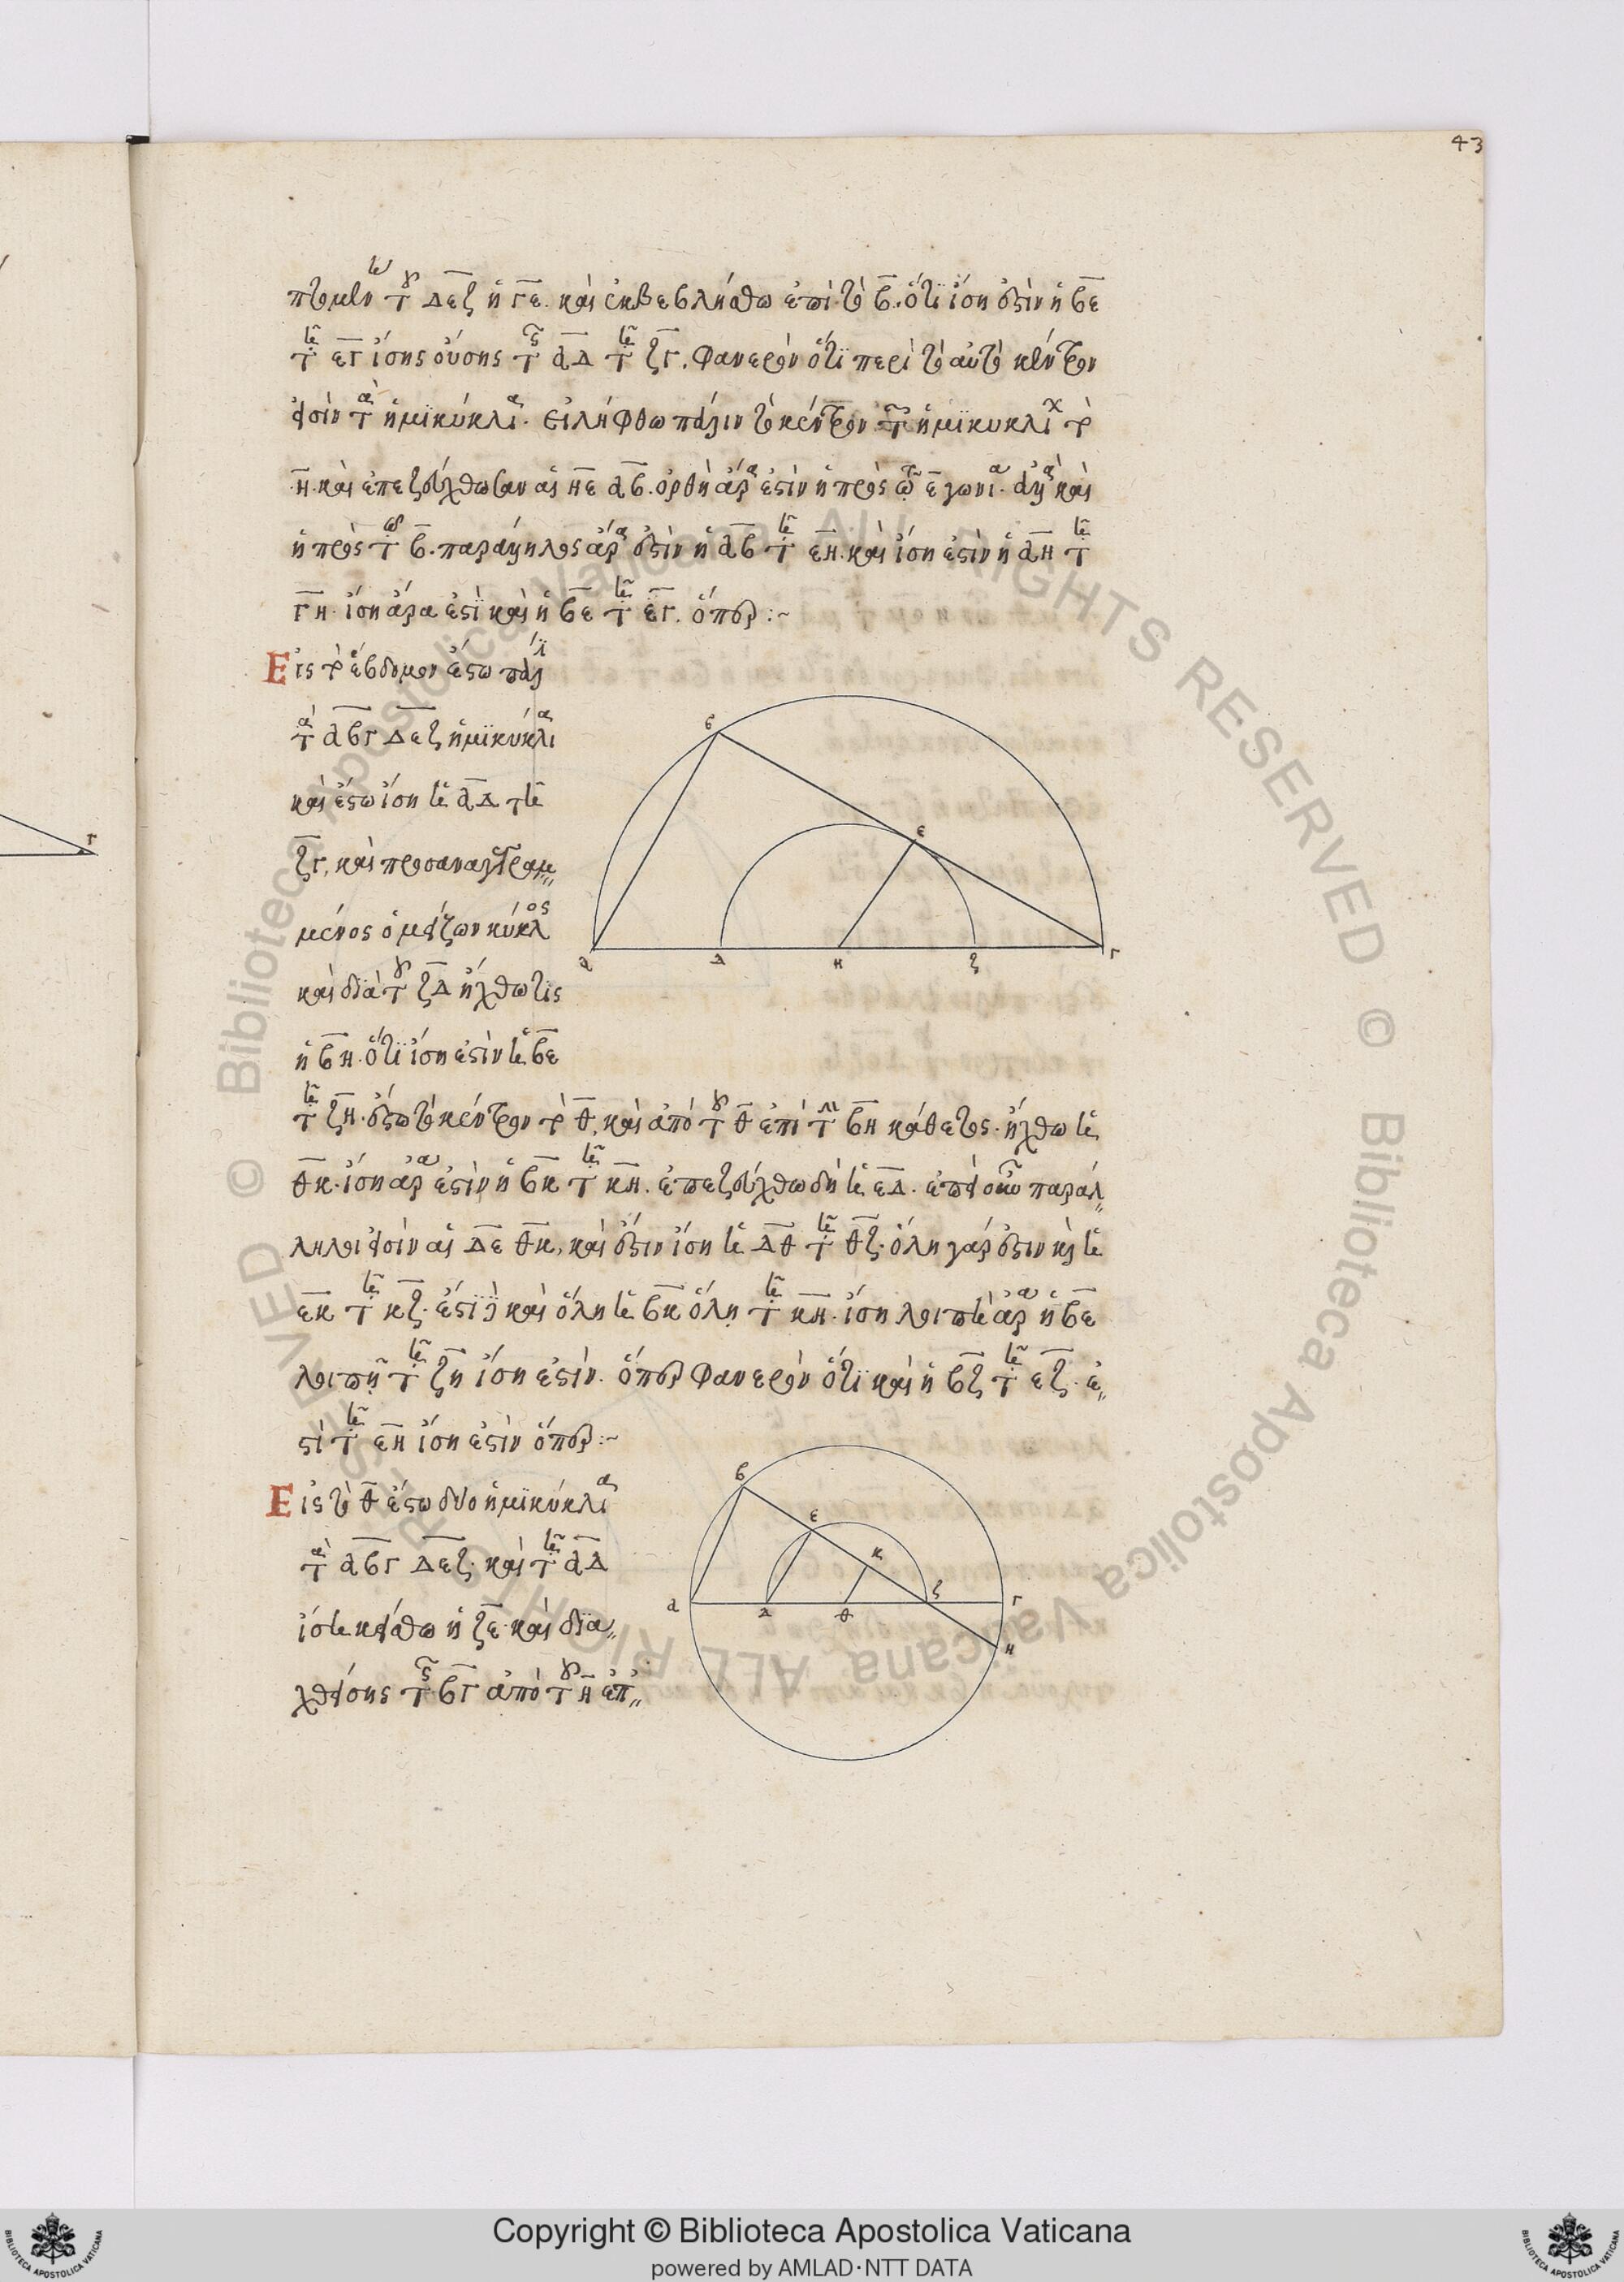 43
πτομένη τοῦ ΔΕΖ ἡ ΓΕ. καὶ ἐκβεβλήσθω ἐπὶ τὸ Β. ὅτι ἴση ἐστὶν ἡ ΒΕ
τῇ ΕΓ ἴσης οὔσης τῆς ΑΔ τῇ ΖΓ. φανερὸν ὅτι περὶ τὸ αὐτὸ κέντρον
εἰσὶν τὰ ἡμικύκλια. εἰλήφθω πάλιν τὸ κέντρον τῶν ἡμικυκλίων τὸ
Η. καὶ ἐπεζεύχθωσαν αἱ ΗΕ ΑΒ. ὀρθὴ ἄρα ἐστὶν ἡ πρὸς τῷ Ε γωνία. ἀλλὰ καὶ
ἡ πρὸς τῷ Β. παράλληλος ἄρα ἐστὶν ἡ ΑΒ τῇ ΕΗ. καὶ ἴση ἐστὶν ἡ ΑΗ τῇ
ΓΗ. ἴση ἄρα ἐστὶ καὶ ἡ ΒΕ τῇ ΕΓ. ὅπερ :~
Εἰς τὸ ἕβδομον ἔστω πάλιν
τὰ ΑΒΓ ΔΕΖ ἡμικύκλια
καὶ ἔστω ἴση ἡ ΑΔ τῇ
ΖΓ, καὶ προσαναγεγραμ
μένος ὁ μείζων κύκλος
καὶ διὰ τοῦ ΖΔ ἤχθω τις
ἡ ΒΗ. ὅτι ἴση ἐστὶν ἡ ΒΕ
τῇ ΖΗ. ἔστω τὸ κέντρον τὸ Θ, καὶ ἀπὸ τοῦ Θ ἐπὶ τὴν ΒΗ κάθετος. ἤχθω ἡ
ΘΚ. ἴση ἄρα ἐστὶν ἡ ΒΚ τῇ ΚΗ. ἐπεζεύχθω δὴ ἡ ΕΔ. ἐπεὶ οὖν παράλ
ληλοι εἰσὶν αἱ ΔΕ ΘΚ, καὶ ἔστιν ἴση ἡ ΔΘ τῇ ΘΖ. ὅλη γάρ ἐστιν καὶ ἡ
ΕΚ τῇ ΚΖ. ἔστι δὲ καὶ ὅλη ἡ ΒΚ ὅλῃ τῇ ΚΗ. ἴση λοιπὴ ἄρα ἡ ΒΕ
λοιπῇ τῇ ΖΗ ἴση ἐστίν. ὅπερ φανερὸν ὅτι καὶ ἡ ΒΖ τῇ ΕΖ. ἐ
στὶ τῇ ΕΗ ἴση ἐστὶν ὅπερ :~
Εἰς τὸ Θ ἔστω δύο ἡμικύκλια
τὰ ΑΒΓ ΔΕΖ. καὶ τῇ ΑΔ
ἴση κείσθω ἡ ΖΕ. καὶ δια
χθείσης τῆς ΒΓ ἀπὸ τοῦ Η ἐπ
Β
Ε
Α
Δ
Η
Ζ
Γ
Β
Ε
Κ
Α
Δ
Θ
Ζ
Γ
Η
Γ
© Biblioteca Apostolica Vaticana ALL RIGHTS RESERVED
© Biblioteca Apostolica Vaticana ALL RIGHTS RESERVED
Copyright © Biblioteca Apostolica Vaticana
powered by AMLAD·NTT DATA
BIBLIOTECA APOSTOLICA VATICANA
BIBLIOTECA APOSTOLICA VATICANA